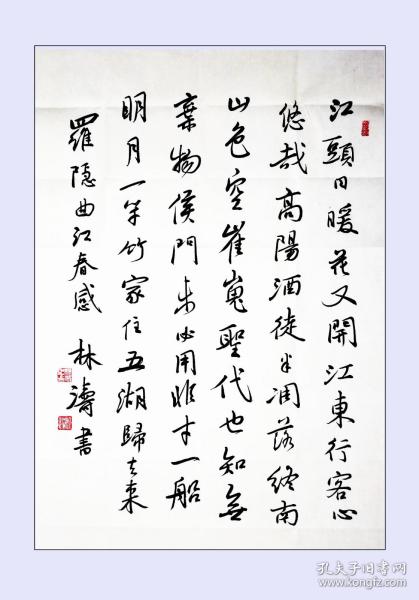 江頭日暖花又開江東行客心
悠哉高陽酒徒半凋落終南
山色空崔嵬聖代也知無
棄物侯門未必用非才一船
明月一竿竹家住五湖歸去來
羅隱曲江春感 林濤書
孔夫子旧书网
www.kongfz.com